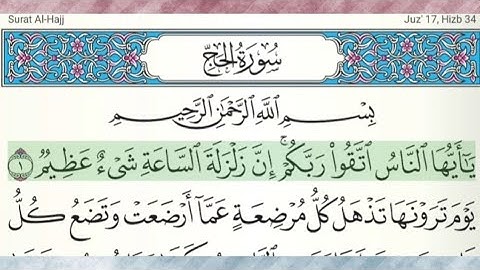 Surat Al-Hajj
Juz' 17, Hizb 34
سُورَةُ الحَجِّ
بِسْمِ اللَّهِ الرَّحْمَٰنِ الرَّحِيمِ
يَٰٓأَيُّهَا ٱلنَّاسُ ٱتَّقُوا۟ رَبَّكُمْ ۚ إِنَّ زَلْزَلَةَ ٱلسَّاعَةِ شَىْءٌ عَظِيمٌ ١
يَوْمَ تَرَوْنَهَا تَذْهَلُ كُلُّ مُرْضِعَةٍ عَمَّآ أَرْضَعَتْ وَتَضَعُ كُلُّ